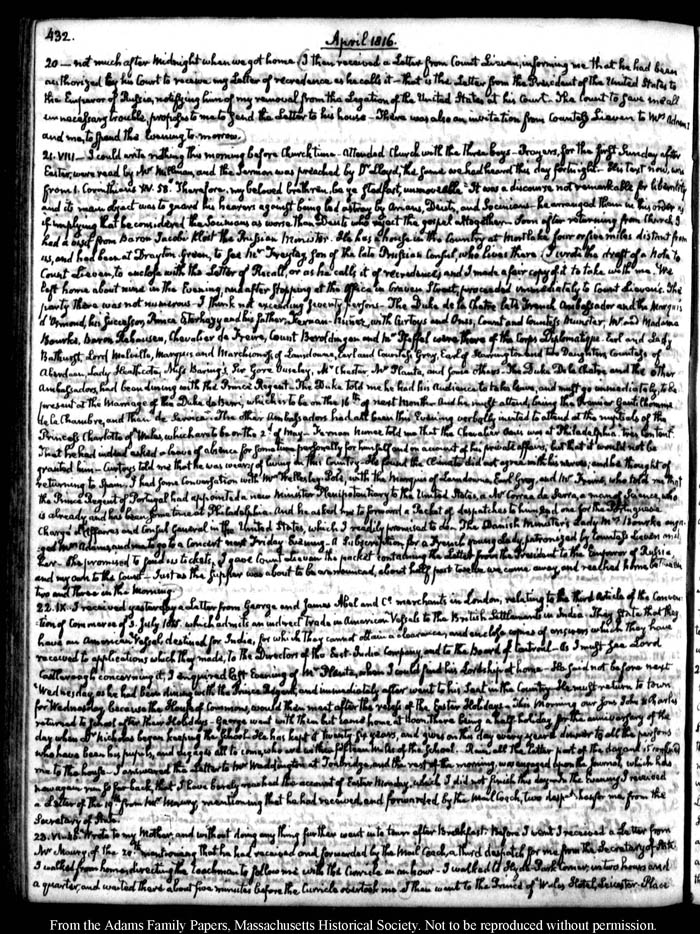 432.
April 1816.
20 — not much after Midnight when we got home. I then received a Letter from Count Lieven, informing me that he had been
authorized by his Court to receive my Letter of recredence as he calls it — that is the Letter from the President of the United States to
the Emperor of Russia, notifying him of my removal from the Legation of the United States at his Court. The Count to save me all
unnecessary trouble, proposes to me to send the Letter to his house — There was also an invitation from Countess Lieven to Mrs Adams
and me, to spend the Evening to-morrow.
21. VIII — I could write nothing this morning before Church time. Attended Church with the three boys — Prayers, for the first Sunday after
Easter, were read by Mr and the Sermon was preached by Dr Lloyd, the same we had heard this day fortnight. His text now, was
from 1. Corinthians XV. 58. Therefore, my beloved brethren, be ye stedfast, unmoveable. It was a discourse not remarkable for liberality
and its main object was to guard his hearers against being led astray by Arians, Deists, and Socinians. he arranged them in this order as
if implying that he considered the Socinians as worse than Deists who reject the gospel altogether. Soon after returning from Church I
had a visit from Baron Jacobi Kloest the Prussian Minister. He has a house in the Country at Mortlake four or five miles distant from
us, and had been at Drayton Green, to see Mr Freytag, Son of the late Prussian Consul, who lives there. I wrote the draft of a Note to
Count Lieven, to enclose with the Letter of Recall, or as he calls, it of recredence, and I made a fair copy of it to take with me. We
left home about nine in the Evening, and after stopping at the Office in Craven Street, proceeded immediately to Count Lieven's. The
party there was not numerous — I think not exceeding seventy persons. The Duke de la Chatre late French Ambassador and the Marquis
d'Osmond, his Successor, Prince Esterhazy and his father, Fernan-Nunez, with Curtoys and Onis, Count and Countess Munster, Mr and Madame
Bourke, Baron Rehausen, Chevalier de Freire, Count Beroldingen and Mr Pfeffel were there of the Corps Diplomatique. Earl and Lady
Bathurst, Lord Melville, Marquis and Marchioness of Lansdowne, Earl and Countess Grey, Earl of Harrington and two Daughters, Countess of
Aberdeen, Lady Heathcote, Miss Baring, Sir Gore Ouseley, Mr Chester, Mr Planta, and some others. The Duke De la Chatre and the other
Ambassadors had been dining with the Prince Regent. The Duke told me he had his Audience to take leave, and must go immediately, to be
present at the Marriage of the Duke de Berri, which is to be on the 16th of next Month. And he must attend, being the Premier Gentilhomme
de la Chambre, and then de Service. The other Ambassadors had all been this Evening verbally invited to attend at the nuptials of the
Princess Charlotte of Wales, which are to be on the 2d of May. Fernan Nunez told me that the Chevalier Onis was at Philadelphia, was content.
That he had indeed asked a leave of absence for some time personally for himself and on account of his private affairs, but that it would not be
granted him — Curtoys told me that he was weary of living in this Country. He found the Climate did not agree with his nerves, and he thought of
returning to Spain. I had some Conversation with Mr Wellesley-Pole, with the Marquis of Lansdowne, Earl Grey, and Mr Freire, who told me that
the Prince Regent of Portugal had appointed a new Minister Plenipotentiary to the United States, a Mr Correa de Serra, a man of Science, who
is already and has been some time at Philadelphia. And he asked me to forward a Packet of despatches to him, and one for the Portuguese
Chargé d'Affaires and Consul General in the United States, which I readily promised to do. The Danish Minister's Lady Mrs Bourke enga-
ged Mrs Adams and me to go to a Concert next Friday Evening — A Subscription, for a French young lady, patronized by Countess Lieven and
her. She promised to send us tickets. I gave Count Lieven the packet containing the Letter from the President to the Emperor of Russia
and my own to the Count — Just as the Supper was about to be announced, about half past twelve we came away, and reached home between
two and three in the Morning.
22. IX. I received yesterday a Letter from George and James Abel and Co. merchants in London, relating to the third Article of the Conven-
tion of Commerce of 3. July 1815. which admits an indirect trade in American Vessels to the British Settlements in India. They state that they
have an American Vessel destined for India, for which they cannot obtain a clearance, and enclose copies of answers which they have
received to applications which they made, to the Directors of the East-India Company, and to the Board of Controul. As I must see Lord
Castlereagh concerning it, I enquired last Evening of Mr Planta, when I could find his Lordship at home. He said not before next
Wednesday, as he had been dining with the Prince Regent, and immediately after went to his Seat in the Country. He must return to town
for Wednesday, because the House of Commons, would then meet after the recess of the Easter Holidays — This Morning our Sons John & Charles
returned to School after their Holidays. George went with them but came home at Noon, there being a half holiday, for the anniversary of the
day when Dr Nicholas began keeping the School. He has kept it twenty six years, and gives on the day every year a dinner to all the persons
who have been his pupils, and engages all to come, who are within fifteen Miles of the School. Rain, all the latter part of the day and it confined
me to the house. I answered the Letter to Mr Waddington at Tunbridge, and the rest of the morning, was engaged upon the Journal, which has
now again run so far back, that I have barely reached the account of Easter Monday, which I did not finish this day. In the Evening I received
a Letter of the 19th from Mr Maury, mentioning that he had received, and forwarded, by the Mail Coach, two despatches for me from the
Secretary of State.
23. Wrote to my Mother, and without doing any thing further went into town after Breakfast. Before I went I received a Letter from
Mr Maury, of the 20th mentioning that he had received and forwarded by the Mail Coach, a third despatch for me from the Secretary of State.
I walked from home, directing the Coachman to follow me with the Curricle in an hour. I walked to Hyde-Park Corner, in two hours and
a quarter, and waited there about five minutes before the Curricle overtook me. I then went to the Prince of Wales Hotel, Leicester-Place
From the Adams Family Papers, Massachusetts Historical Society. Not to be reproduced without permission.